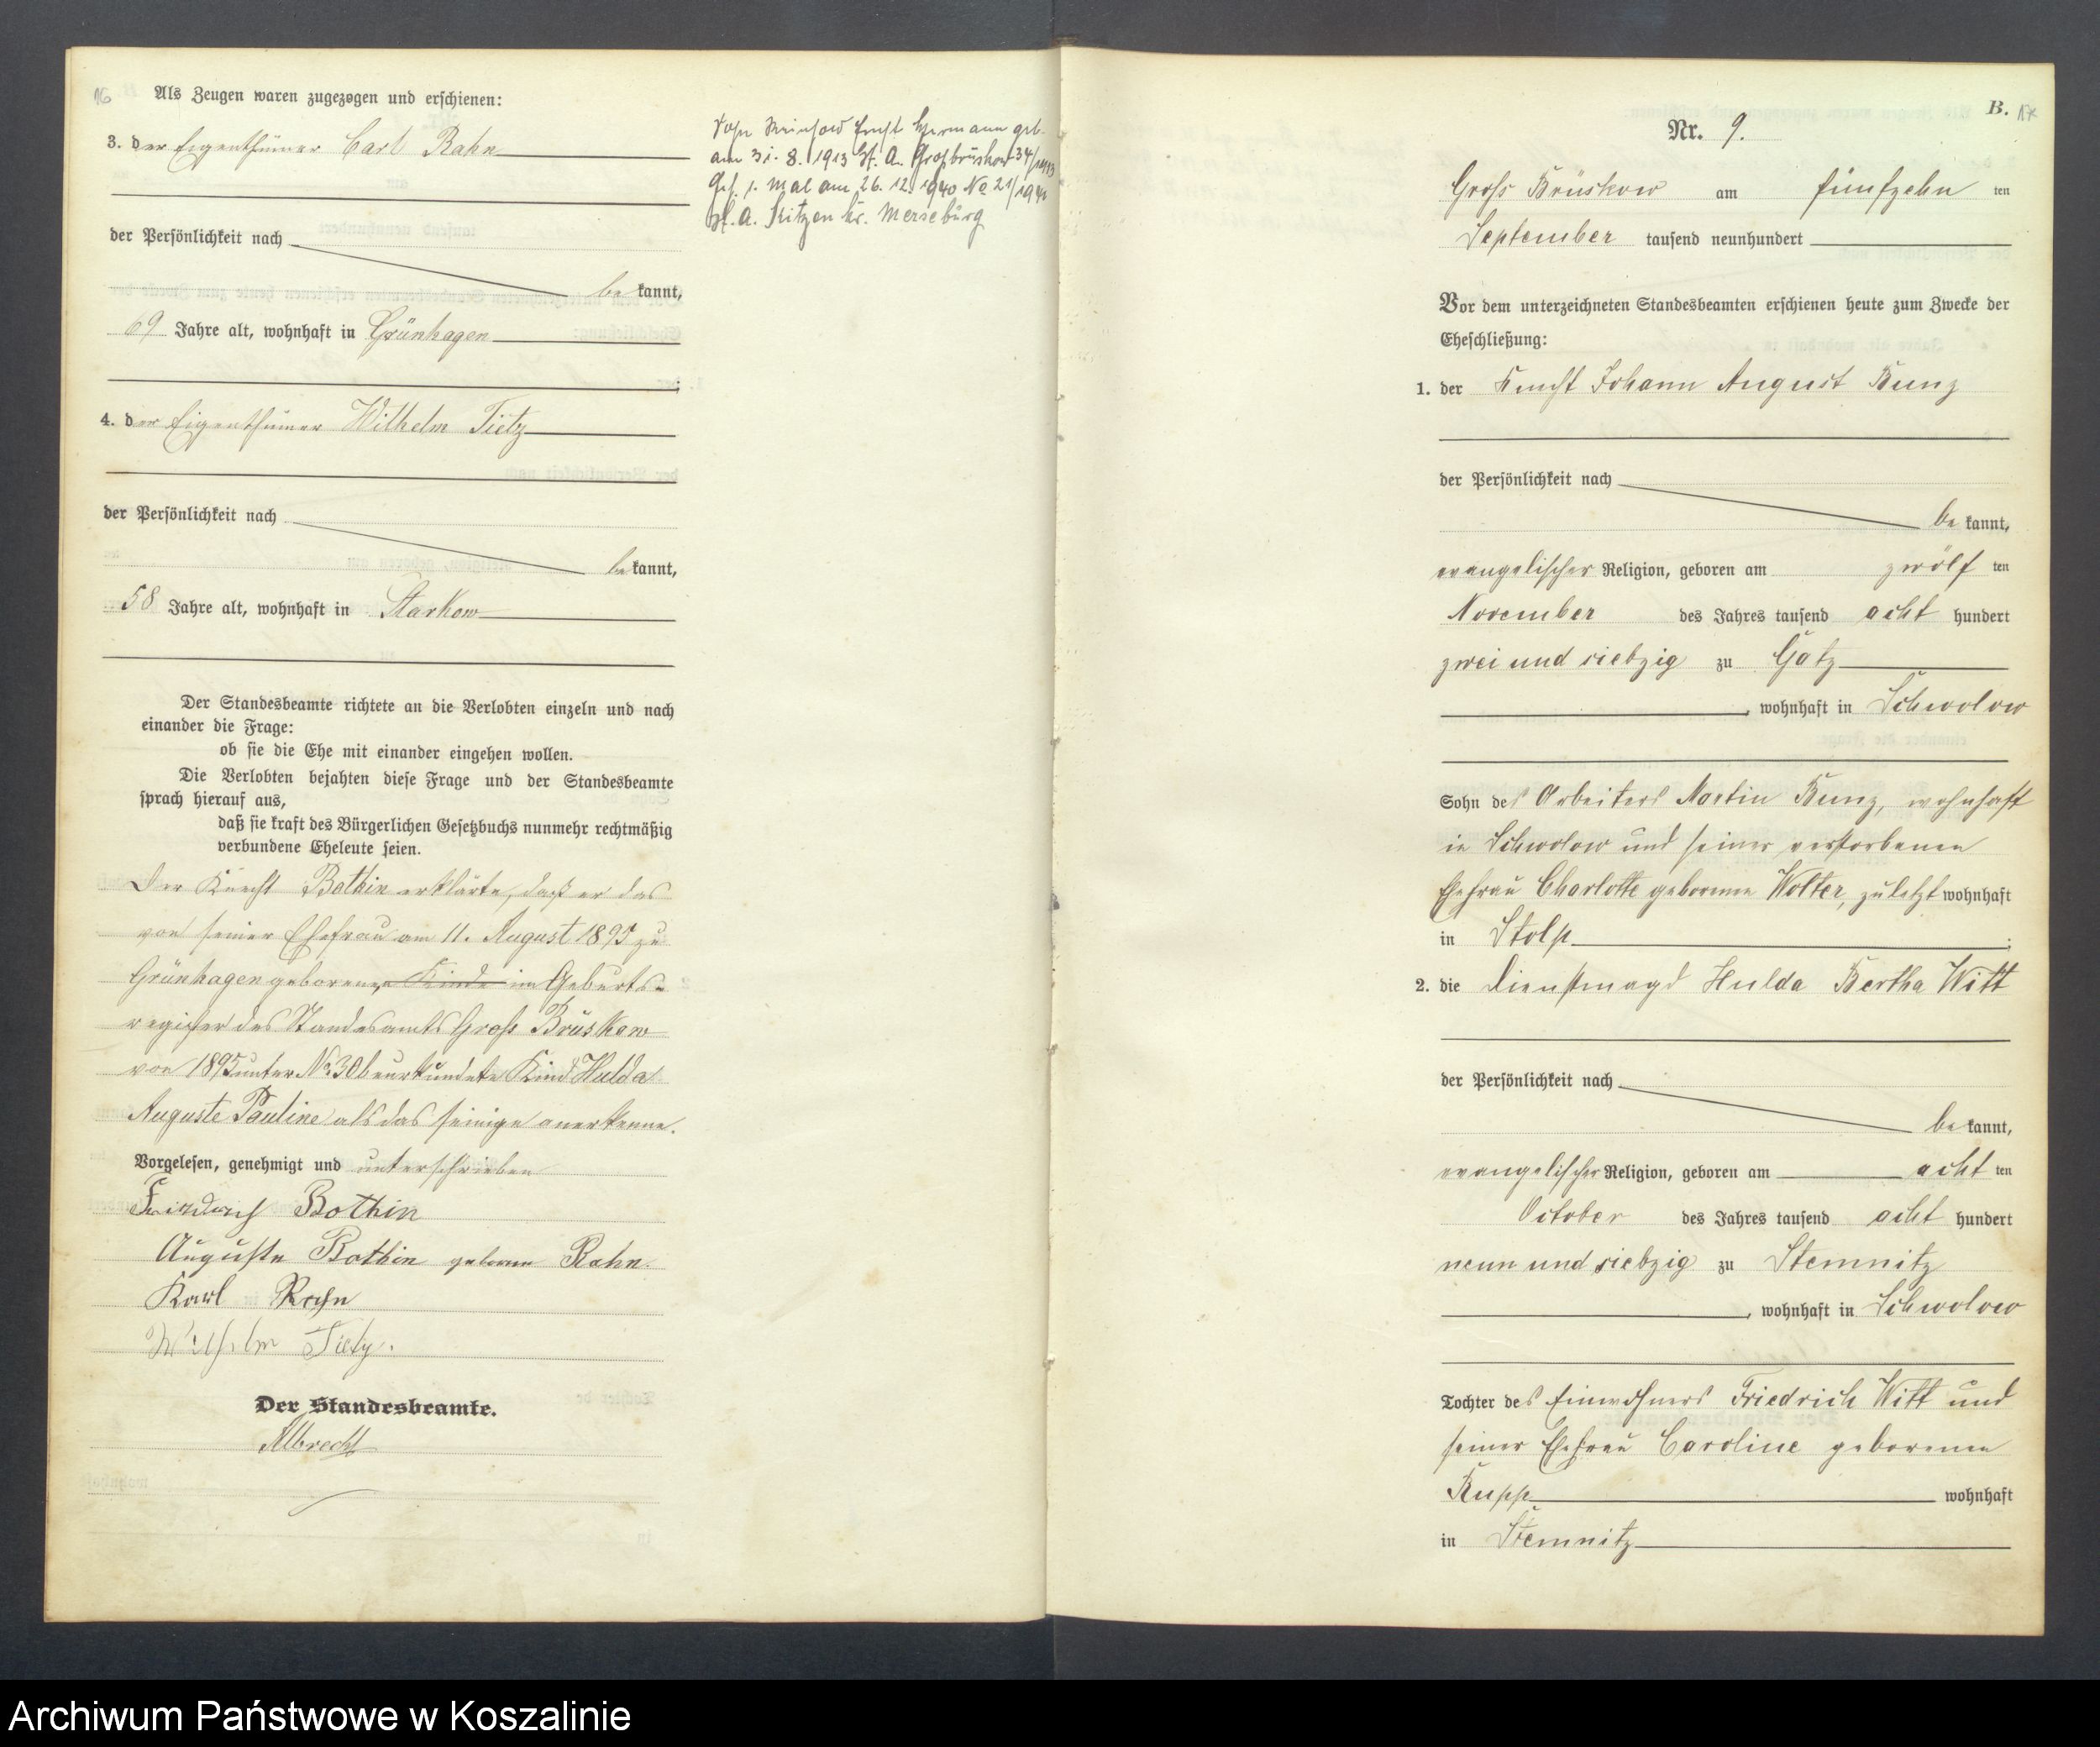 16
Als Zeugen waren zugezogen und erschienen:
3. der Eigenthümer Carl Rahn
der Persönlichkeit nach
bekannt,
69 Jahre alt, wohnhaft in Grünhagen
4. der Eigenthümer Wilhelm Tietz
der Persönlichkeit nach
bekannt,
58 Jahre alt, wohnhaft in Starkow
Der Standesbeamte richtete an die Verlobten einzeln und nach
einander die Frage:
ob sie die Ehe mit einander eingehen wollen.
Die Verlobten bejahten diese Frage und der Standesbeamte
sprach hierauf aus,
daß sie kraft des Bürgerlichen Gesetzbuchs nunmehr rechtmäßig
verbundene Eheleute seien.
Der Knecht Bothin erklärte, daß er das
von seiner Ehefrau am 11. August 1895 zu
Grünhagen geborene, Kinde im Geburts-
register des Standesamts Groß Brüskow
von 1895 unter No 30 beurkundete Kind Hulda
Auguste Pauline als das seinige anerkenne.
Vorgelesen, genehmigt und unterschrieben
Friedrich Bothin
Auguste Bothin geborene Rahn.
Karl Rahn
Wilhelm Tietz.
Der Standesbeamte.
Albrecht
Sohn Reinhold Ernst Hermann geb.
am 31. 8. 1913 St. A. Großbrüskow 34/1913
Geh. 1. Mal am 26. 12. 1940 No 21/1940
St. A. Kitzen Kr. Merseburg
B. 17
Nr. 9.
Groß Brüskow am fünfzehn ten
September tausend neunhundert
Vor dem unterzeichneten Standesbeamten erschienen heute zum Zwecke der
Eheschließung:
1. der Knecht Johann August Kunz
der Persönlichkeit nach
bekannt,
evangelischer Religion, geboren am zwölf ten
November des Jahres tausend acht hundert
zwei und siebzig zu Gatz
, wohnhaft in Schwolow
Sohn des Arbeiters Martin Kunz, wohnhaft
in Schwolow und seiner verstorbenen
Ehefrau Charlotte geborene Wolter, zuletzt wohnhaft
in Stolp ;
2. die Dienstmagd Hulda Bertha Witt
der Persönlichkeit nach
bekannt,
evangelischer Religion, geboren am acht ten
October des Jahres tausend acht hundert
neun und siebzig zu Stemnitz
, wohnhaft in Schwolow
Tochter des Einwohners Friedrich Witt und
seiner Ehefrau Caroline geborenen
Kupp wohnhaft
in Stemnitz
Archiwum Państwowe w Koszalinie